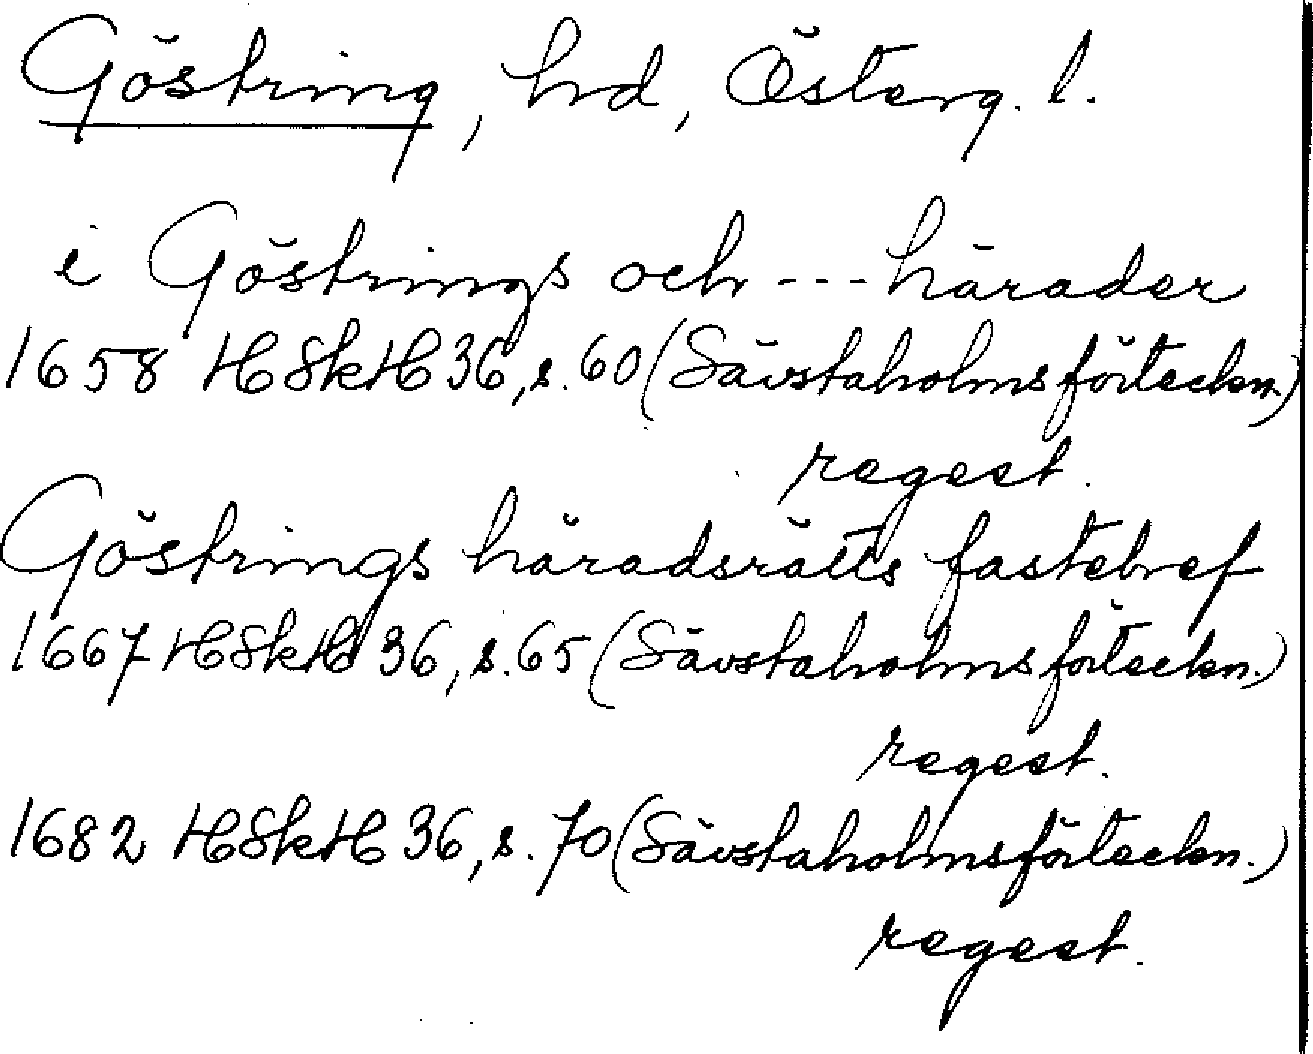 Göstring, hd, Österg. l.
i Göstrings och --- härader
1658 HSkH 36, s. 60 (Sävstaholmsförteckn.)
regest.
Göstrings häradsrätts fastebref
1667 HSkH 36, s. 65 (Sävstaholmsförteckn.)
regest.
1682 HSkH 36, s. 70 (Sävstaholmsförteckn.)
regest.